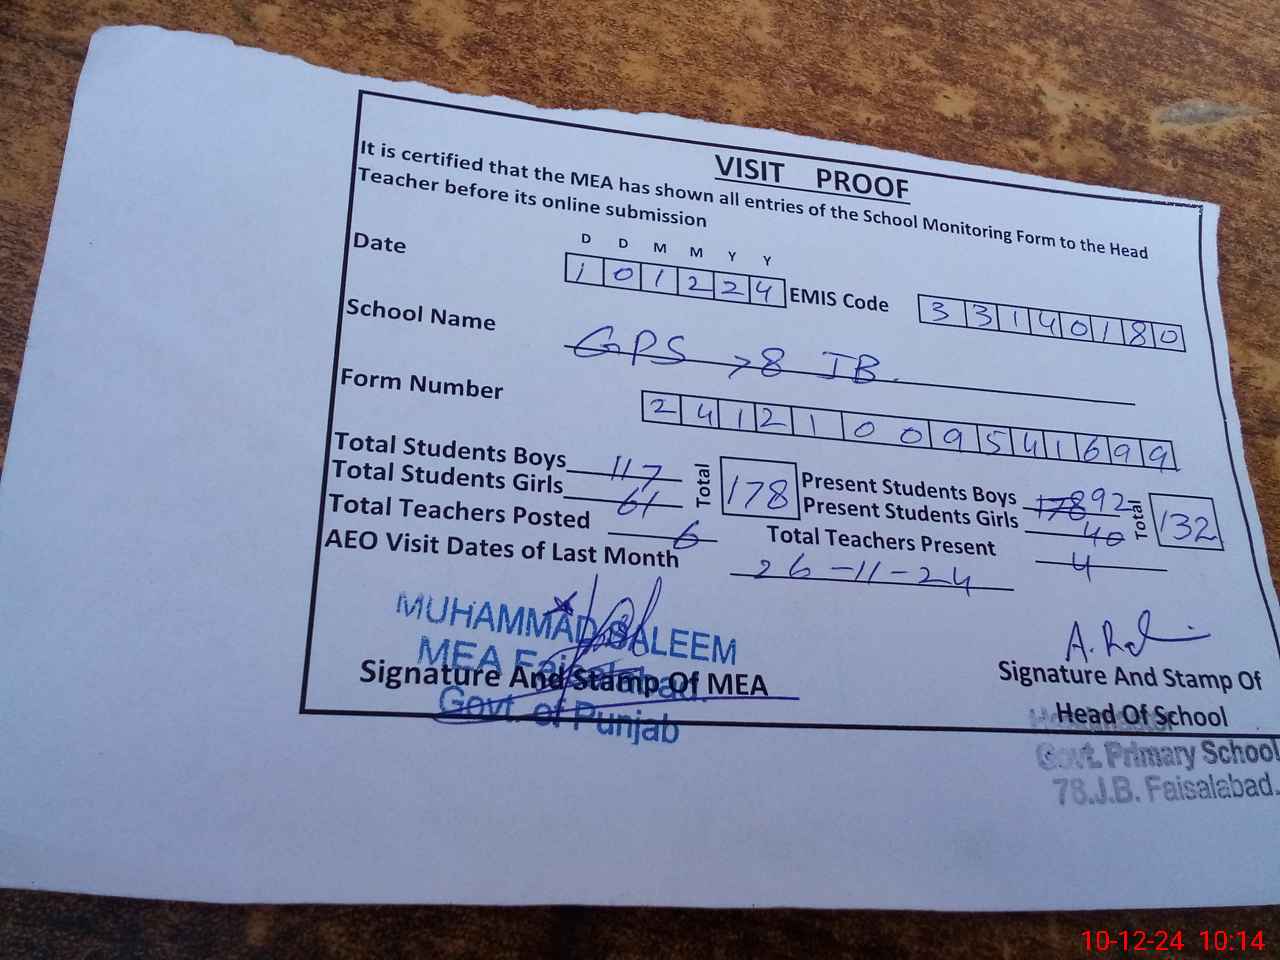 VISIT PROOF
It is certified that the MEA has shown all entries of the School Monitoring Form to the Head
Teacher before its online submission
D D M M Y Y
Date 1 0 1 2 2 4 EMIS Code 3 3 1 4 0 1 8 0
School Name GPS 78 JB.
Form Number 2 4 1 2 1 0 0 9 5 4 1 6 9 9
Total Students Boys 117 Total 178 Present Students Boys 178 92 Total 132
Total Students Girls 61 Present Students Girls 40
Total Teachers Posted 6 Total Teachers Present 4
AEO Visit Dates of Last Month 26-11-24
MUHAMMAD SALEEM
MEA Faisalabad.
Govt. of Punjab
Signature And Stamp Of MEA
Signature And Stamp Of
Head Of School
Govt. Primary School
78.J.B. Faisalabad.
10-12-24 10:14